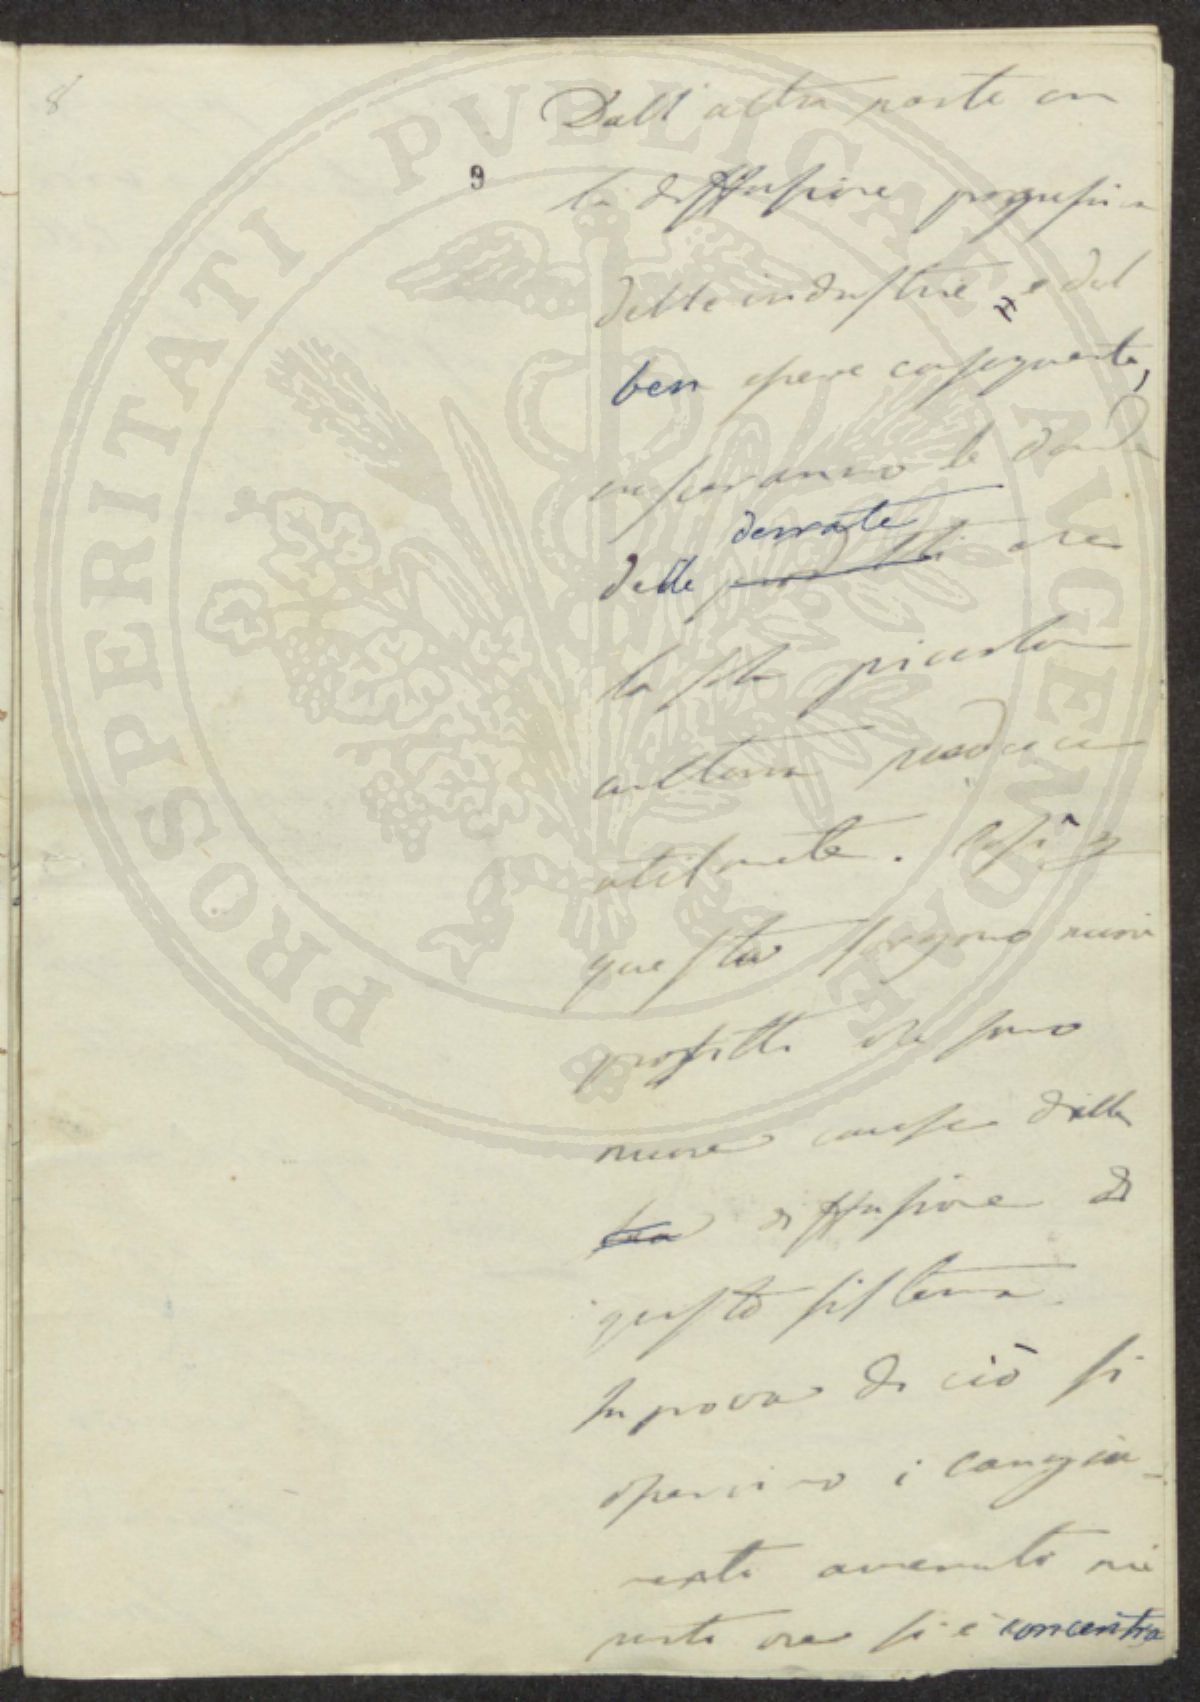 8
9
Dall' altra parte con
la diffusione progressiva
delle industrie, e del
ben essere conseguente,
cresceranno le domande
delle derrate prodotti che
la sola piccola
coltura produce
utilmente. Così
questa sorgono nuovi
profitti che sono
nuove cause della
diffusione di
questo sistema.
In prova di ciò si
osservino i cangia-
menti avvenuti nei
posti ove si è concentra
PROSPERITATI PUBLICAE AUGENDAE